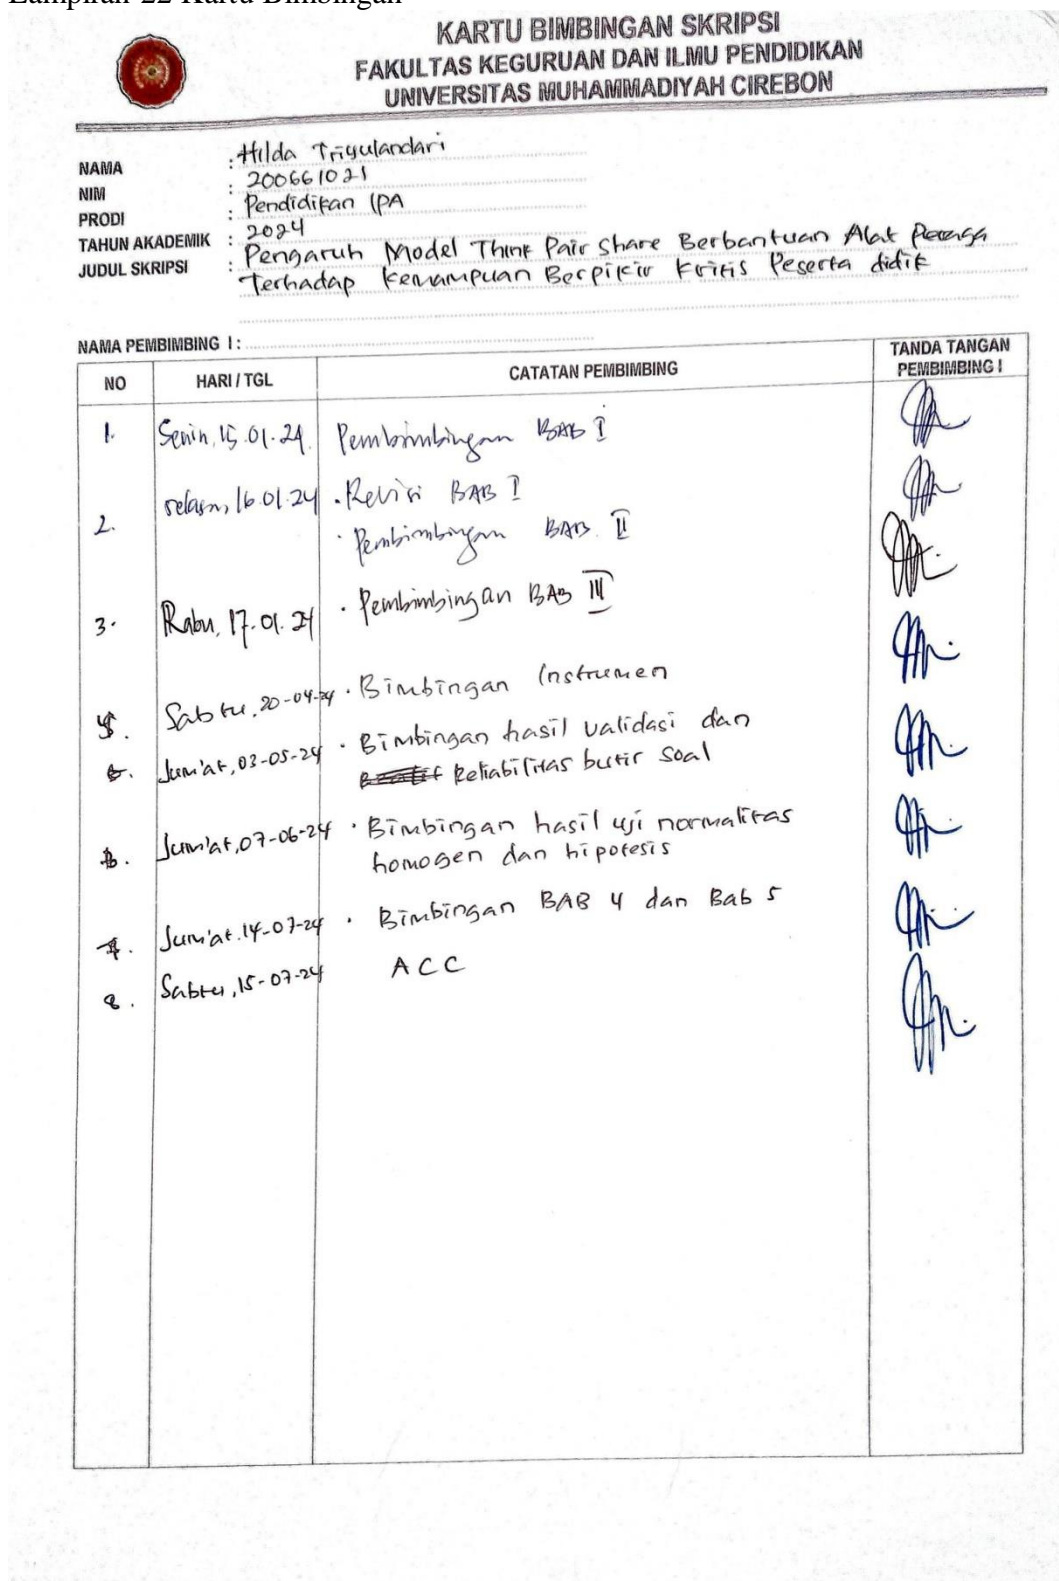 Lampiran 22 Kartu Bimbingan
KARTU BIMBINGAN SKRIPSI
FAKULTAS KEGURUAN DAN ILMU PENDIDIKAN
UNIVERSITAS MUHAMMADIYAH CIREBON
NAMA : Hilda Triyulandari
NIM : 200661021
PRODI : Pendidikan IPA
TAHUN AKADEMIK : 2024
JUDUL SKRIPSI : Pengaruh Model Think Pair Share Berbantuan Alat Peraga
Terhadap Kemampuan Berpikir Kritis Peserta didik
NAMA PEMBIMBING I :
NO HARI / TGL CATATAN PEMBIMBING TANDA TANGAN PEMBIMBING I
1. Senin, 15.01.24. Pembimbingan BAB I
2. selasa, 16.01.24 . Revisi BAB I
. Pembimbingan BAB II
3. Rabu, 17.01.24 . Pembimbingan BAB III
Sabtu, 20-04-24 . Bimbingan Instrumen
Jum'at, 03-05-24 . Bimbingan hasil validasi dan
Reliabilitas butir soal
Jum'at, 07-06-24 . Bimbingan hasil uji normalitas
homogen dan hipotesis
Jum'at. 14-07-24 . Bimbingan BAB 4 dan Bab 5
8. Sabtu, 15-07-24 ACC